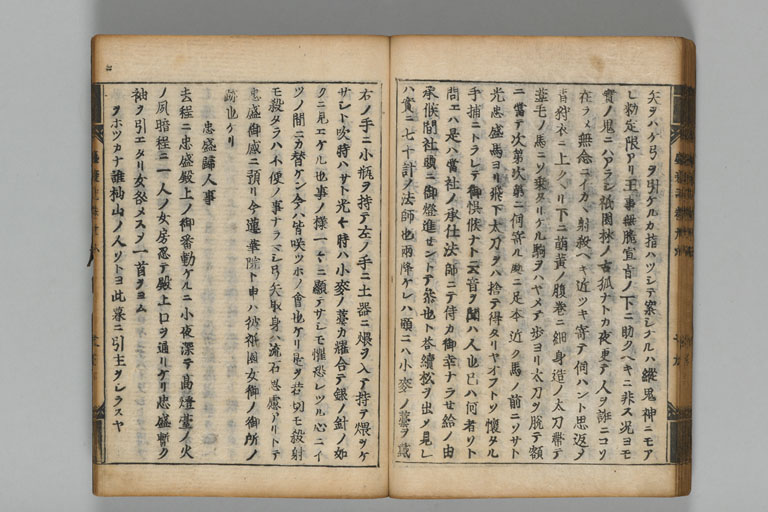 矢ヲハケ弓ヲ引ケルカ指ハツシテ案シケルハ縦鬼神ニモア
レ勅定限アリ王事無脆宣旨ノ下ニ助クヘキニ非ス況ヨモ
實ノ鬼ニハアラシ祇園林ノ古狐ナトカ夜更テ人ヲ誑ニコソ
在ラメ無念ニイカヽ射殺ヘキ近ツキ寄テ伺ハント思返メ
青狩衣ニ上クヽリ下ニ萌黄ノ腹巻ニ細身造ノ太刀帶テ
葦毛ノ馬ニソ乗タリケル駒ヲハヤメテ歩ヨリ太刀ヲ脱テ額
ニ當テ次第次第ニ伺寄ル
足本近ク馬ノ前ニソサト
光忠盛馬ヨリ飛下太刀ヲハ捨テ得タリヤオフトソ懐タル
手捕ニトラレテ御悞候ナト云音ヲ聞ハ人也己ハ何者ソト
問エハ是ハ當社ノ承仕法師ニテ侍カ御幸ナラセ給ノ由
承候間社頭ニ御燈進セントテ參也ト答續松ヲ出メ見レ
ハ實ニ七十計ノ法師也雨降ケレハ頭ニハ小麥ノ藁ヲ戴
右ノ手ニ小瓶ヲ持テ左ノ手ニ土器ニ煨ヲ入テ持テ煨ヲケ
サシト吹時ハサト光ル時ハ小麥ノ藁カ耀合テ銀ノ針ノ如
クニ見エケル也事ノ様一々ニ顕テサシモ懼恐レツル心ニイ
ツノ間ニカ替ケン今ハ皆咲ツホノ會也ケリ是ヲ若切モ殺射
モ殺タラハ不便ノ事ナラマシ弓矢取身ハ流石思慮アリトテ
忠盛御感ニ預リ今蓮華院ト申ハ彼祇園女御ノ御所ノ
跡也ケリ
忠盛歸人事
去程ニ忠盛殿上ノ御番勤ケルニ小夜深テ高燈臺ノ火
ノ夙暗程ニ一人ノ女房忍テ殿上口ヲ通リケリ忠盛暫ク
袖ヲ引エタリ女
メスソ一首ヲヨム
ヲホツカナ誰杣山ノ人ソトヨ此暮ニ引主ヲシラスヤ